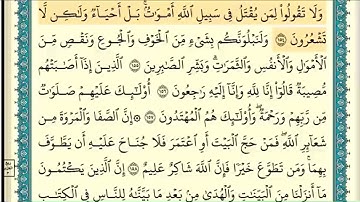 وَلَا تَقُولُوا۟ لِمَن يُقْتَلُ فِى سَبِيلِ ٱللَّهِ أَمْوَٰتٌۢ ۚ بَلْ أَحْيَآءٌ وَلَٰكِن لَّا
تَشْعُرُونَ ١٥٤ وَلَنَبْلُوَنَّكُم بِشَىْءٍ مِّنَ ٱلْخَوْفِ وَٱلْجُوعِ وَنَقْصٍ مِّنَ
ٱلْأَمْوَٰلِ وَٱلْأَنفُسِ وَٱلثَّمَرَٰتِ ۗ وَبَشِّرِ ٱلصَّٰبِرِينَ ١٥٥ ٱلَّذِينَ إِذَآ أَصَٰبَتْهُم
مُّصِيبَةٌ قَالُوٓا۟ إِنَّا لِلَّهِ وَإِنَّآ إِلَيْهِ رَٰجِعُونَ ١٥٦ أُو۟لَٰٓئِكَ عَلَيْهِمْ صَلَوَٰتٌ
مِّن رَّبِّهِمْ وَرَحْمَةٌ ۖ وَأُو۟لَٰٓئِكَ هُمُ ٱلْمُهْتَدُونَ ١٥٧ إِنَّ ٱلصَّفَا وَٱلْمَرْوَةَ مِن
شَعَآئِرِ ٱللَّهِ ۖ فَمَنْ حَجَّ ٱلْبَيْتَ أَوِ ٱعْتَمَرَ فَلَا جُنَاحَ عَلَيْهِ أَن يَطَّوَّفَ
بِهِمَا ۚ وَمَن تَطَوَّعَ خَيْرًا فَإِنَّ ٱللَّهَ شَاكِرٌ عَلِيمٌ ١٥٨ إِنَّ ٱلَّذِينَ يَكْتُمُونَ
مَآ أَنزَلْنَا مِنَ ٱلْبَيِّنَٰتِ وَٱلْهُدَىٰ مِنۢ بَعْدِ مَا بَيَّنَّٰهُ لِلنَّاسِ فِى ٱلْكِتَٰبِ